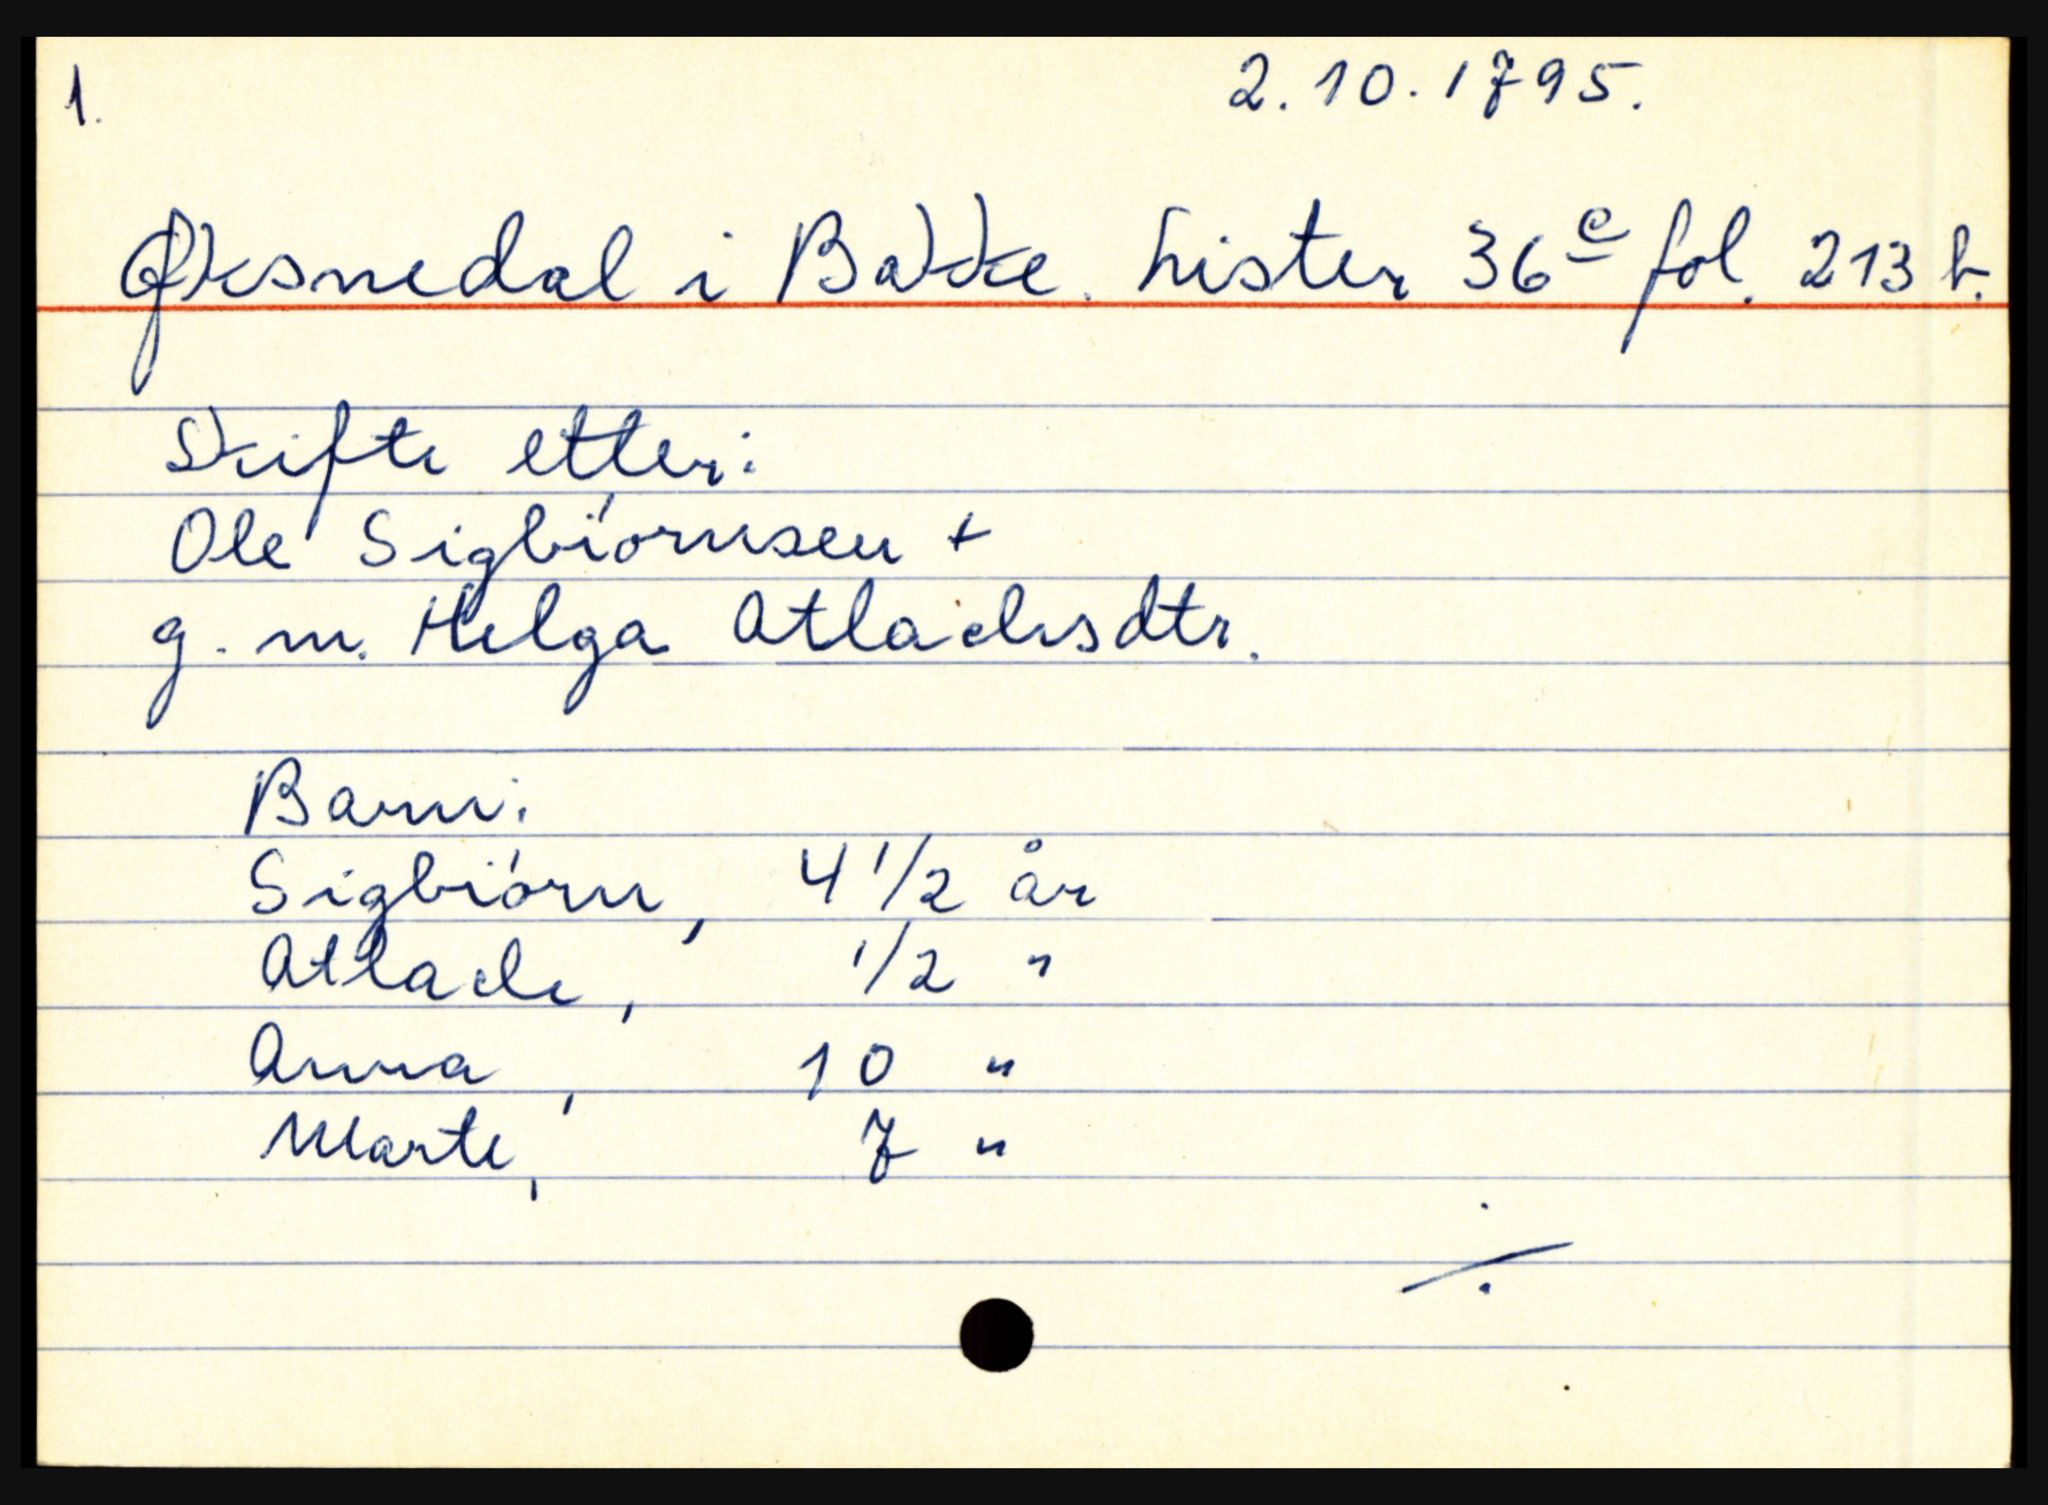 1.
2.10.1795.
Øksnedal i Bakke. Lister 36 c fol. 213 b.
Skifte etter:
Ole Sigbiórnsen +
g. m. Helga Atlacksdtr.
Barn:
Sigbiórn, 4 1/2 år
Atlack, 1/2 "
Anna, 10 "
Marte, 7 "
./.